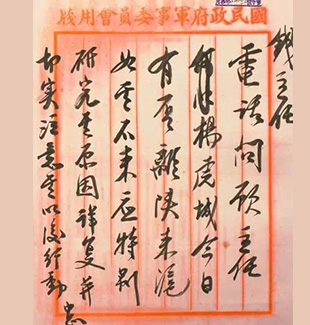 國民政府軍事委員會用牋
錢主任
電話問顧主任
楊虎城今日
有否離陝來滬
如其不來應特別
研究其原因詳复并
切實注意其以後行動